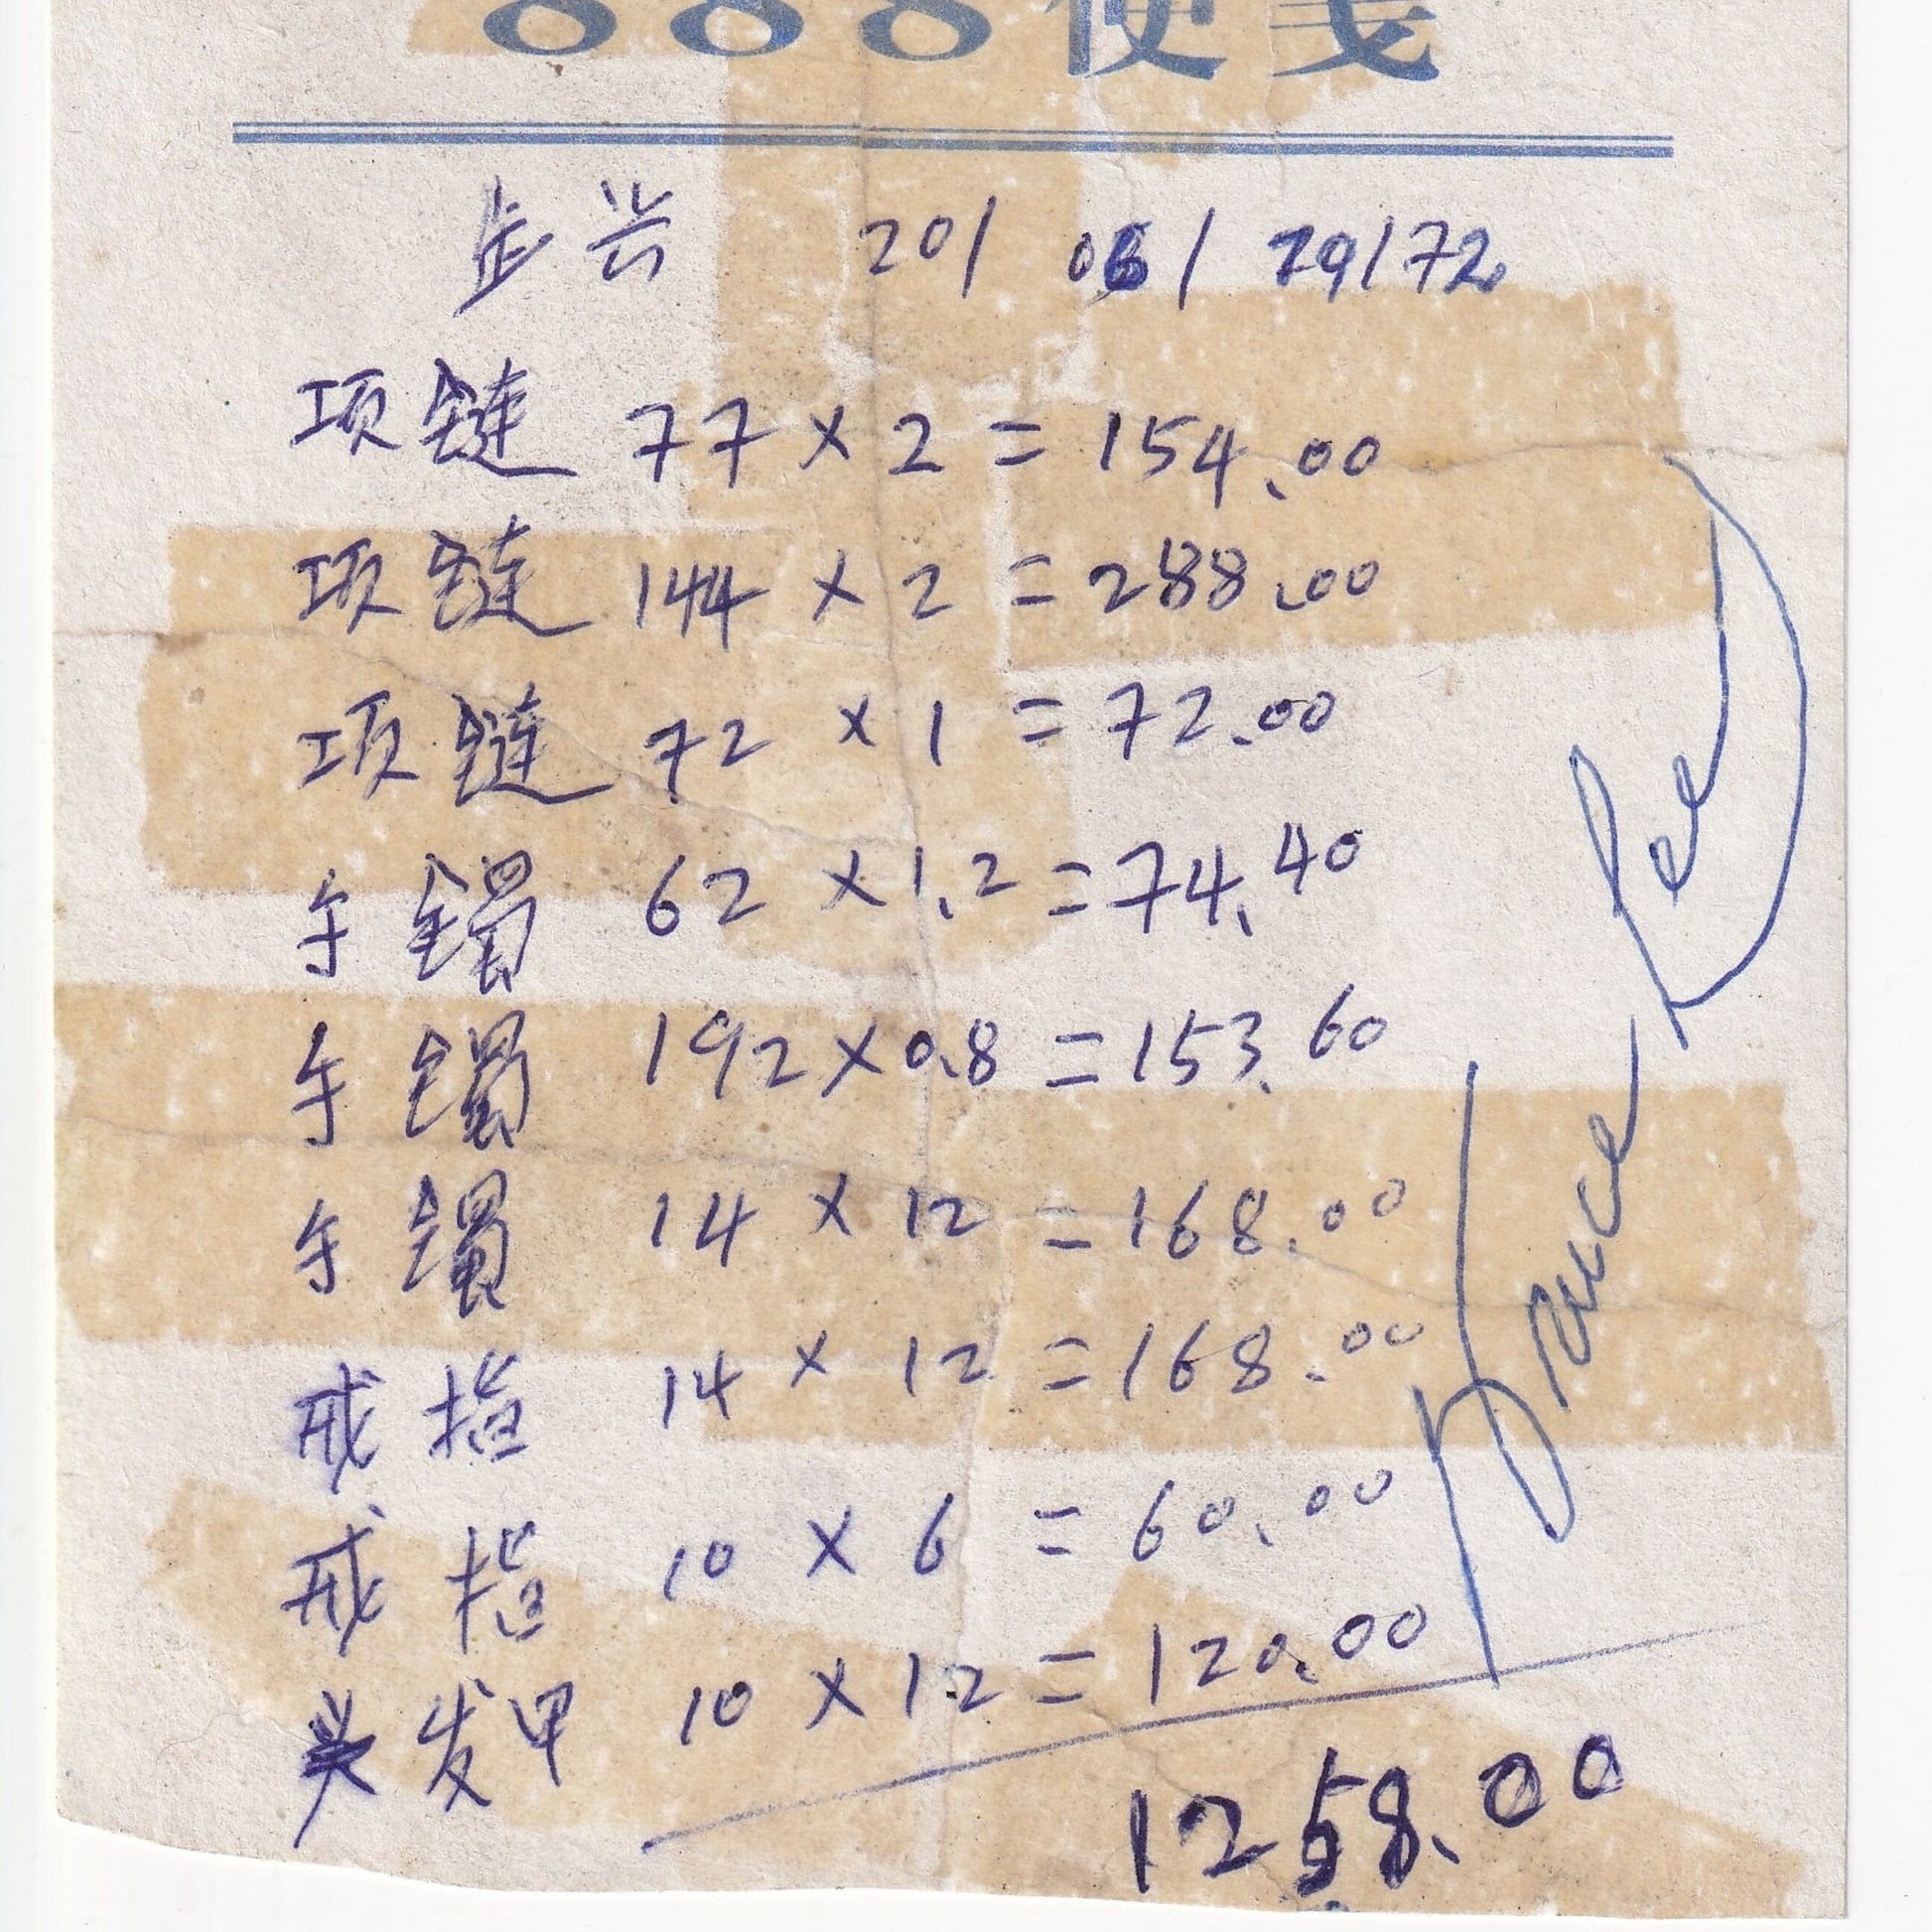 888便笺
20/ 06/ 29/72
项链 77 × 2 = 154.00
项链 144 × 2 = 288.00
项链 72 × 1 = 72.00
手镯 62 × 1.2 = 74.40
手镯 192 × 0.8 = 153.60
手镯 14 × 12 = 168.00
戒指 14 × 12 = 168.00
戒指 10 × 6 = 60.00
头发甲 10 × 12 = 120.00
1258.00
Bruce Lee